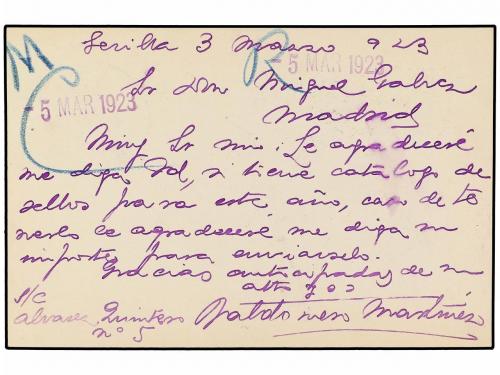 Sevilla 3 Marzo 923
- 5 MAR 1923
Sr Don Miguel Galvez
- 5 MAR 1923
Madrid
Muy Sr mio: Le agradeceré
me diga Vd, si tiene catálogo de
sellos para este año, caso de te
nerlo le agradeceré me diga su
importe para enviarselo.
Gracias anticipadas de su
atto
S/C
Alvarez Quintero
nº 5
Baldomero Martinez